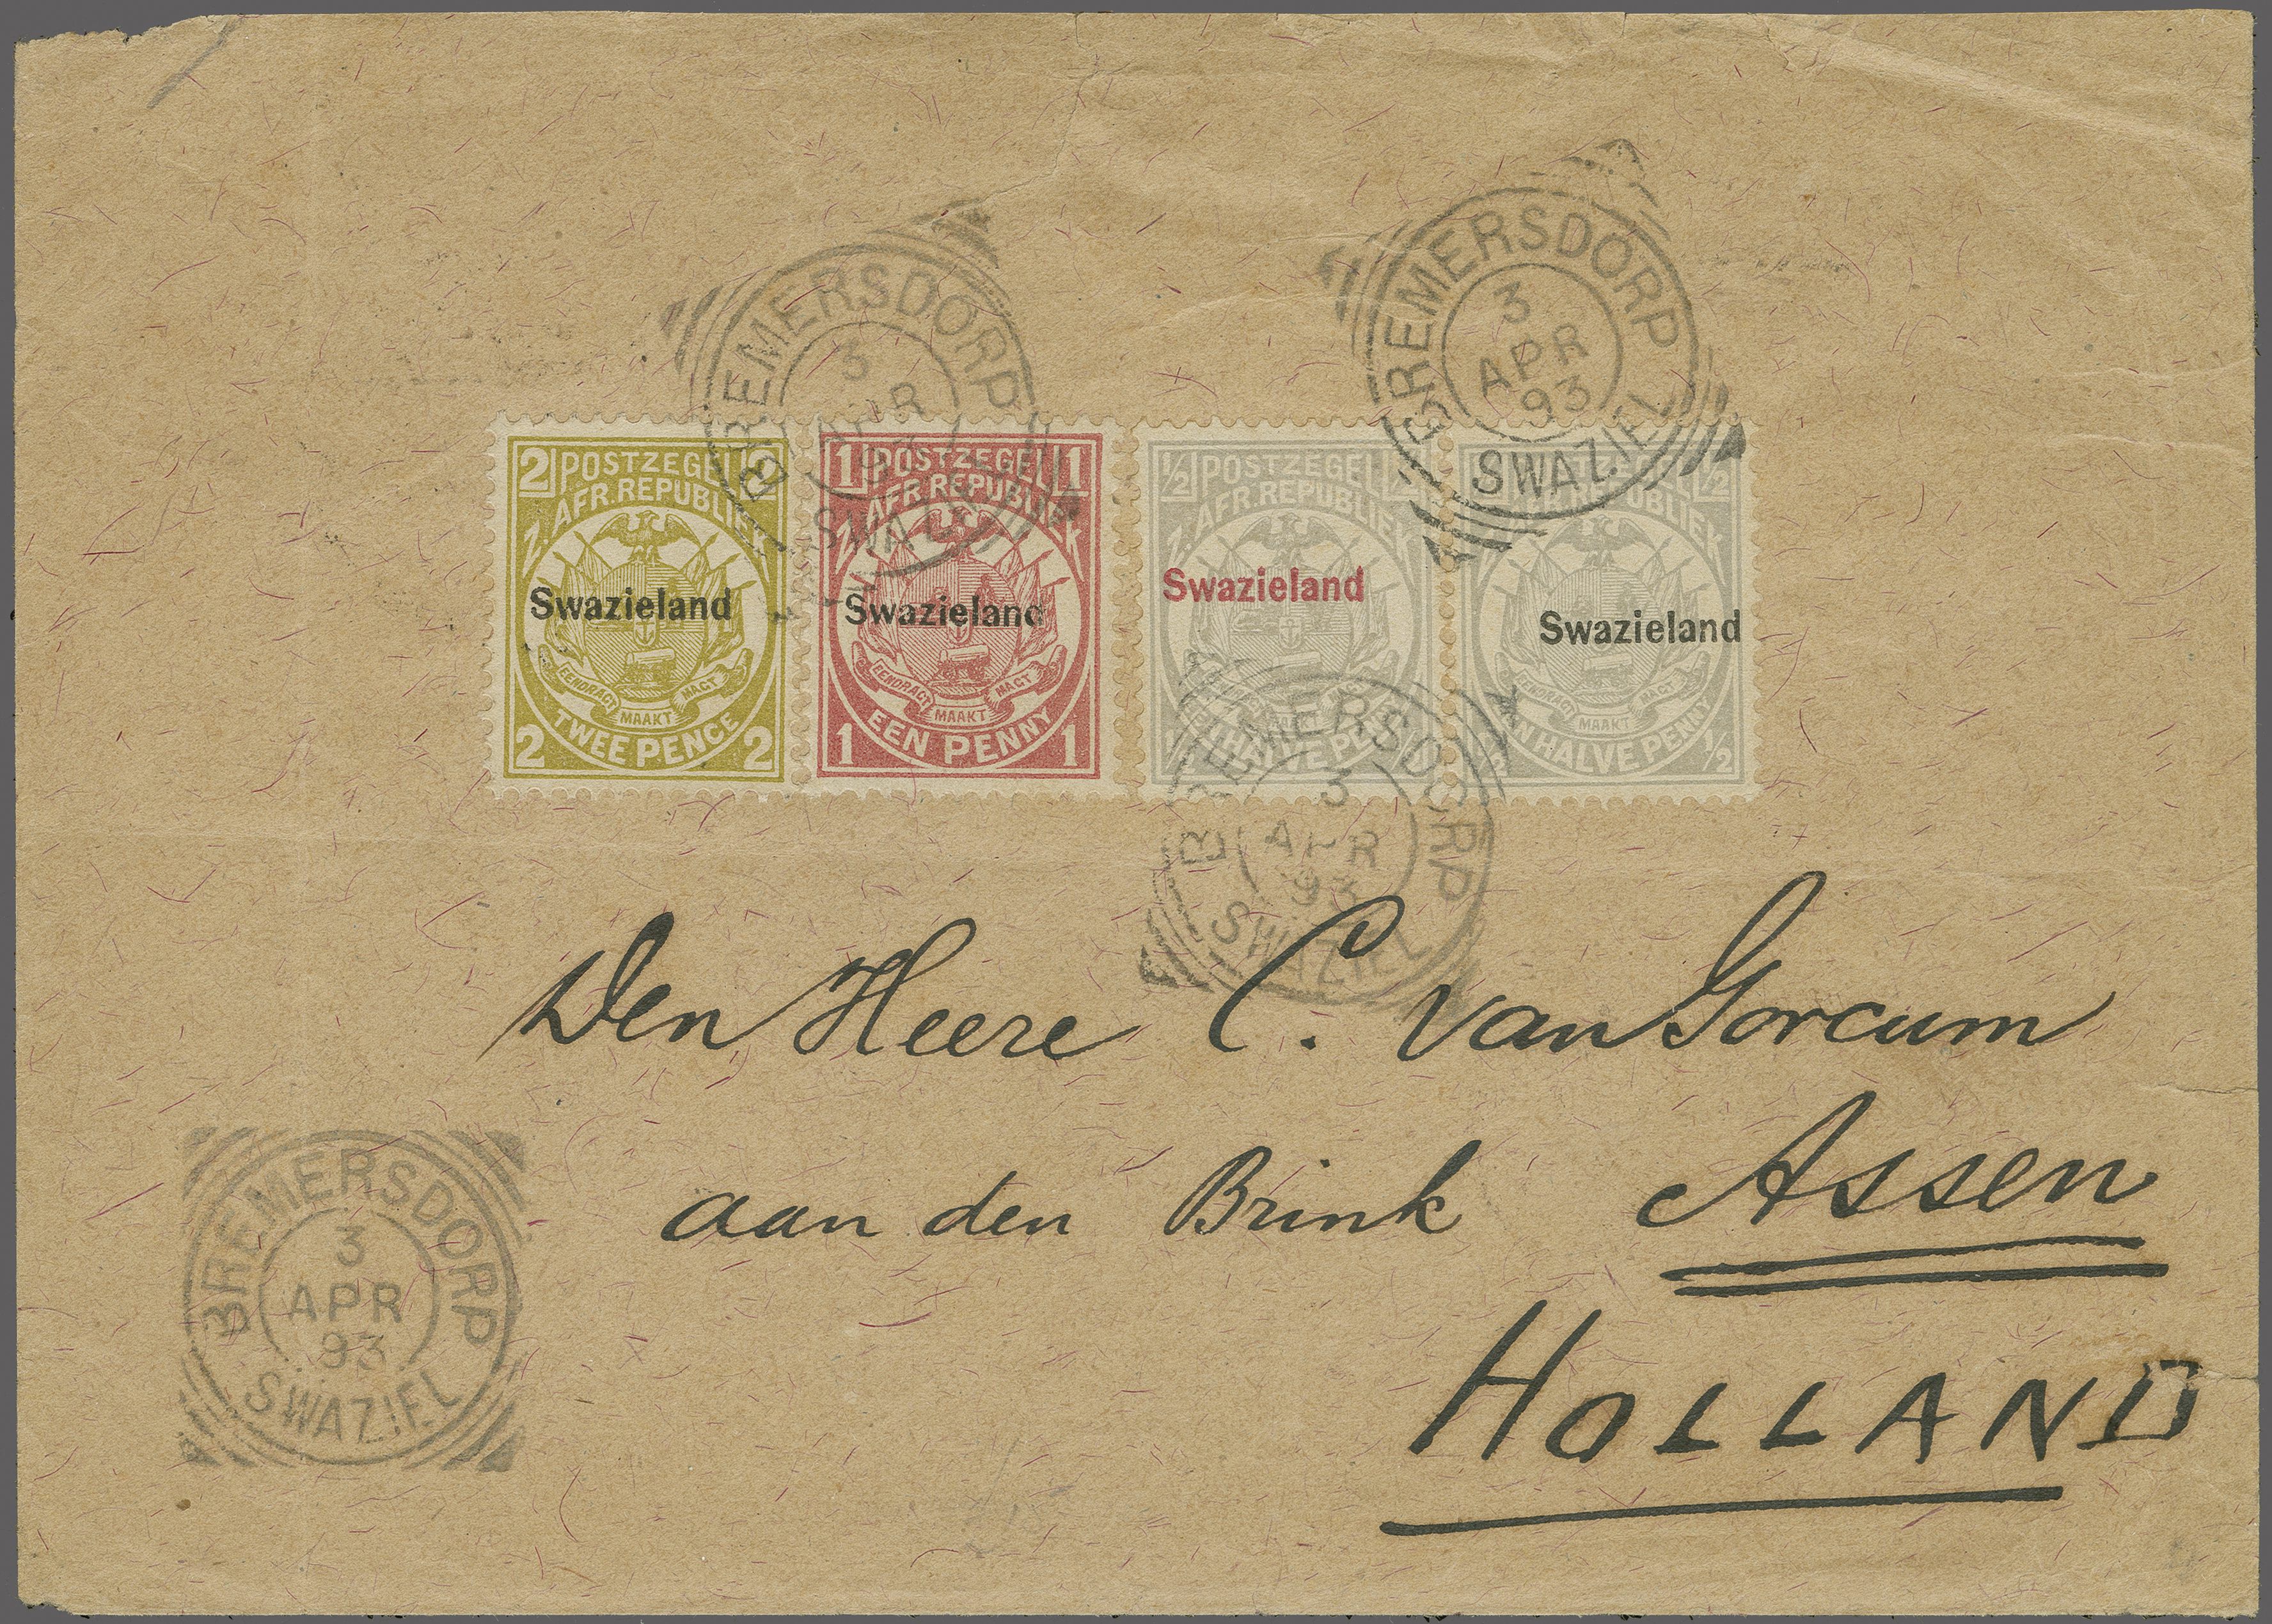 BREMERSDORP
3
APR
93
SWAZIEL
BREMERSDORP
3
APR
93
SWAZIEL
2 POSTZEGEL 2
Z. AFR. REPUBLIEK
Swazieland
EENDRACT MAAKT MAGT
TWEE PENCE
2 2
1 POSTZEGEL 1
Z. AFR. REPUBLIEK
Swazieland
EENDRACT MAAKT MAGT
EEN PENNY
1 1
1/2 POSTZEGEL 1/2
Z. AFR. REPUBLIEK
Swazieland
EEN HALVE PENNY
POSTZEGEL 1/2
REPUBLIEK
Swazieland
EENDRACT MAAKT MAGT
EEN HALVE PENNY
1/2
BREMERSDORP
3
APR
93
SWAZIEL
Den Heere C. van Gorcum
aan den Brink Assen
HOLLAND
BREMERSDORP
3
APR
93
SWAZIEL